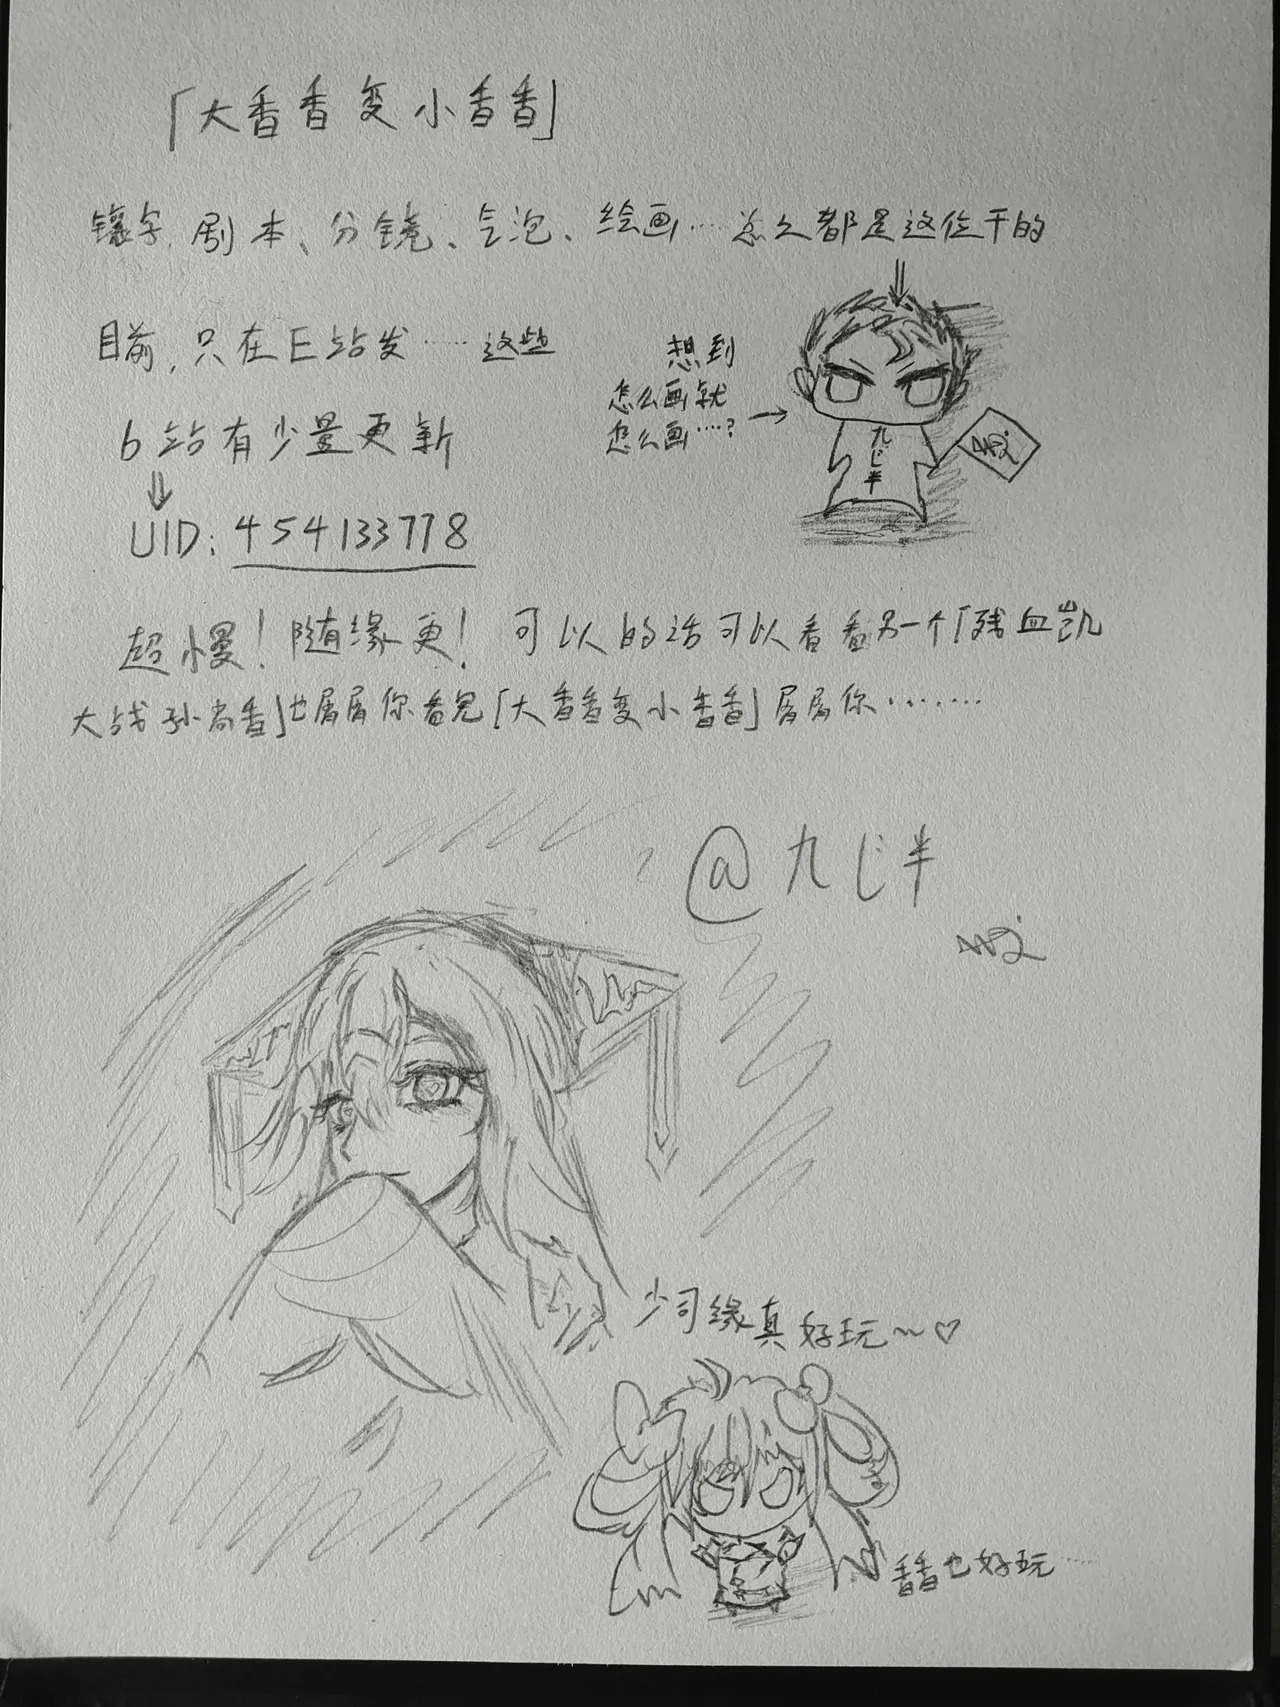 「大香香变小香香」
镶字、剧本、分镜、气泡、绘画……怎么都是这位干的
目前,只在E站发……这些
想到
怎么画就
怎么画……?
九じ半
b站有少量更新
UID:454133778
超慢!随缘更!可以的话可以看看另一个「残血凯
大战孙尚香」也屑屑你看完「大香香变小香香」屑屑你……
@九じ半
少司缘真好玩~♡
香香也好玩……